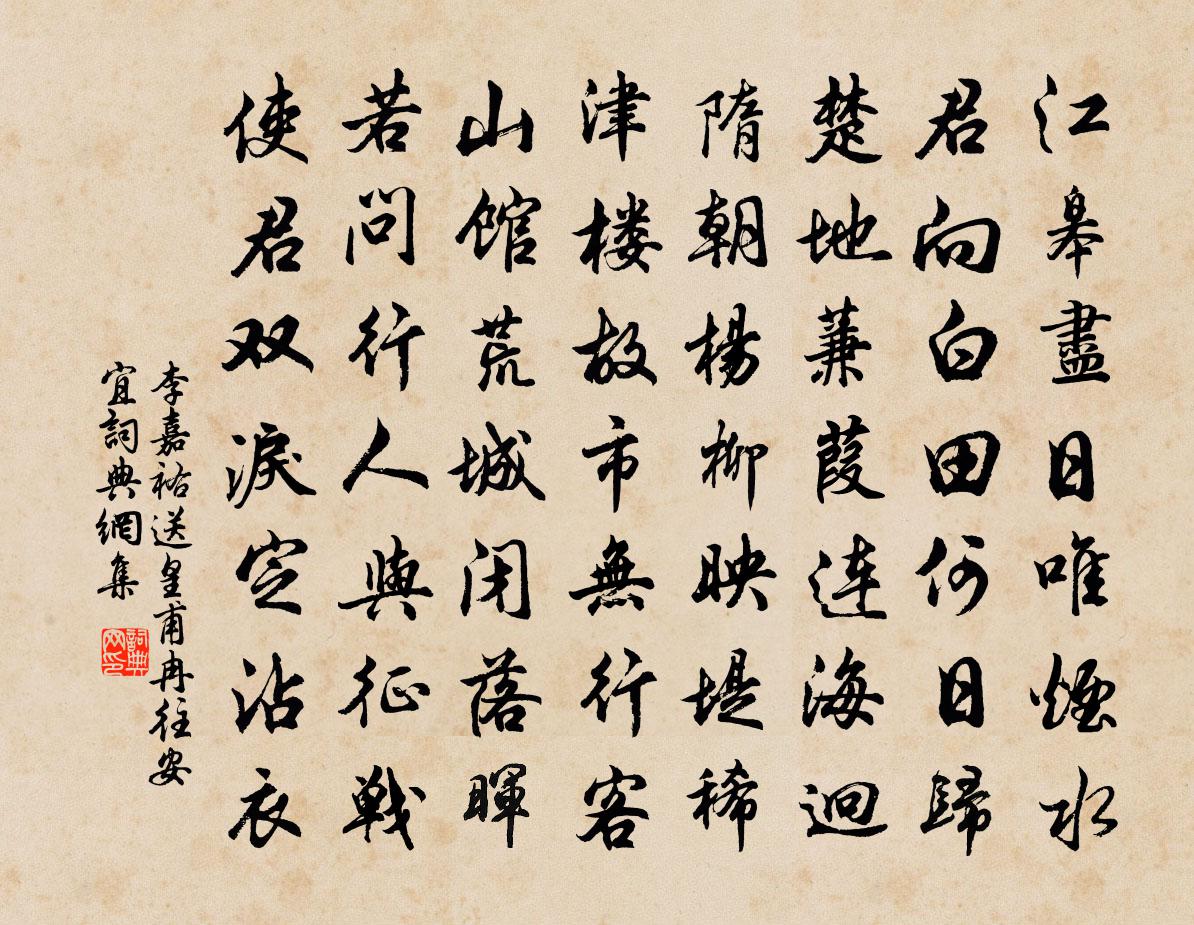 江皋盡日唯煙水
君向白田何日歸
楚地蒹葭连海迥
隋朝楊柳映堤稀
津楼故市無行客
山馆荒城闭落暉
若问行人與征戰
使君双淚定沾衣
李嘉祐送皇甫冉往安
宜詞典網集
詞典网印